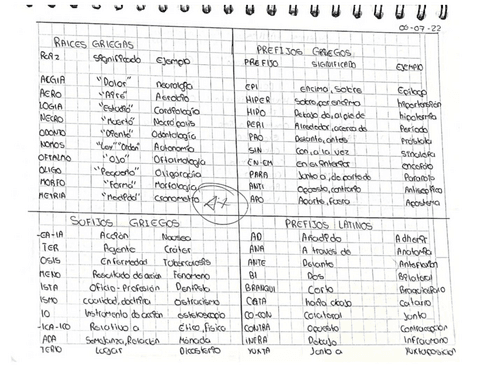 00-07-22
RAICES GRIEGAS
RAIZ Significado Ejemplo
ALGIA "Dolor" Neurologia
AERO "Aire" Aerobio
LOGIA "Estudio" Cardiologia
NECRO "Muerto" Necropolis
ODONTO "Diente" Odontologia
NOMOS "Ley" "Orden" Autonomia
OFTALMO "Ojo" Oftalmologia
OLIGO "Pequeño" Oligarquia
MORFO "Forma" Morfologia
METRIA "Medida"
A+
PREFIJOS GRIEGOS
PREFIJO SIGNIFICADO EJEMPLO
EPI encima, sobre
HIPER Sobre, por encima hipertensión
HIPO Debajo de, al pie de hipotermia
PERI Alrededor, acerca de Periodo
PRO Delante, antes
SIN Con, a la vez
EN-EM en el interior
PARA Junto a, de parte de
ANTI Opuesto, contrario Antiseptico
APO Aparte, fuera
SUFIJOS GRIEGOS
-EA-IA Acción Nausea
TER Agente Cráter
OSIS Enfermedad Tuberculosis
MENO Resultado de acción Fenomeno
ISTA Oficio-Profesión Dentista
ISMO cualidad, doctrina ostracismo
IO Instrumento de accion
-ICA-ICO Relativo a Etico, fisico
ADA Semejanza, Relación Monada
TERIO Lugar
PREFIJOS LATINOS
AD Añadido Adherir
ANA A traves de
ANTE Delante
BI Dos Bilateral
BRAQUI Corto
CATA hacia abajo
CO-CON Colateral Junto
CONTRA opuesto
INFRA Debajo Infrahumano
YUXTA Junto a Yuxtaposicion